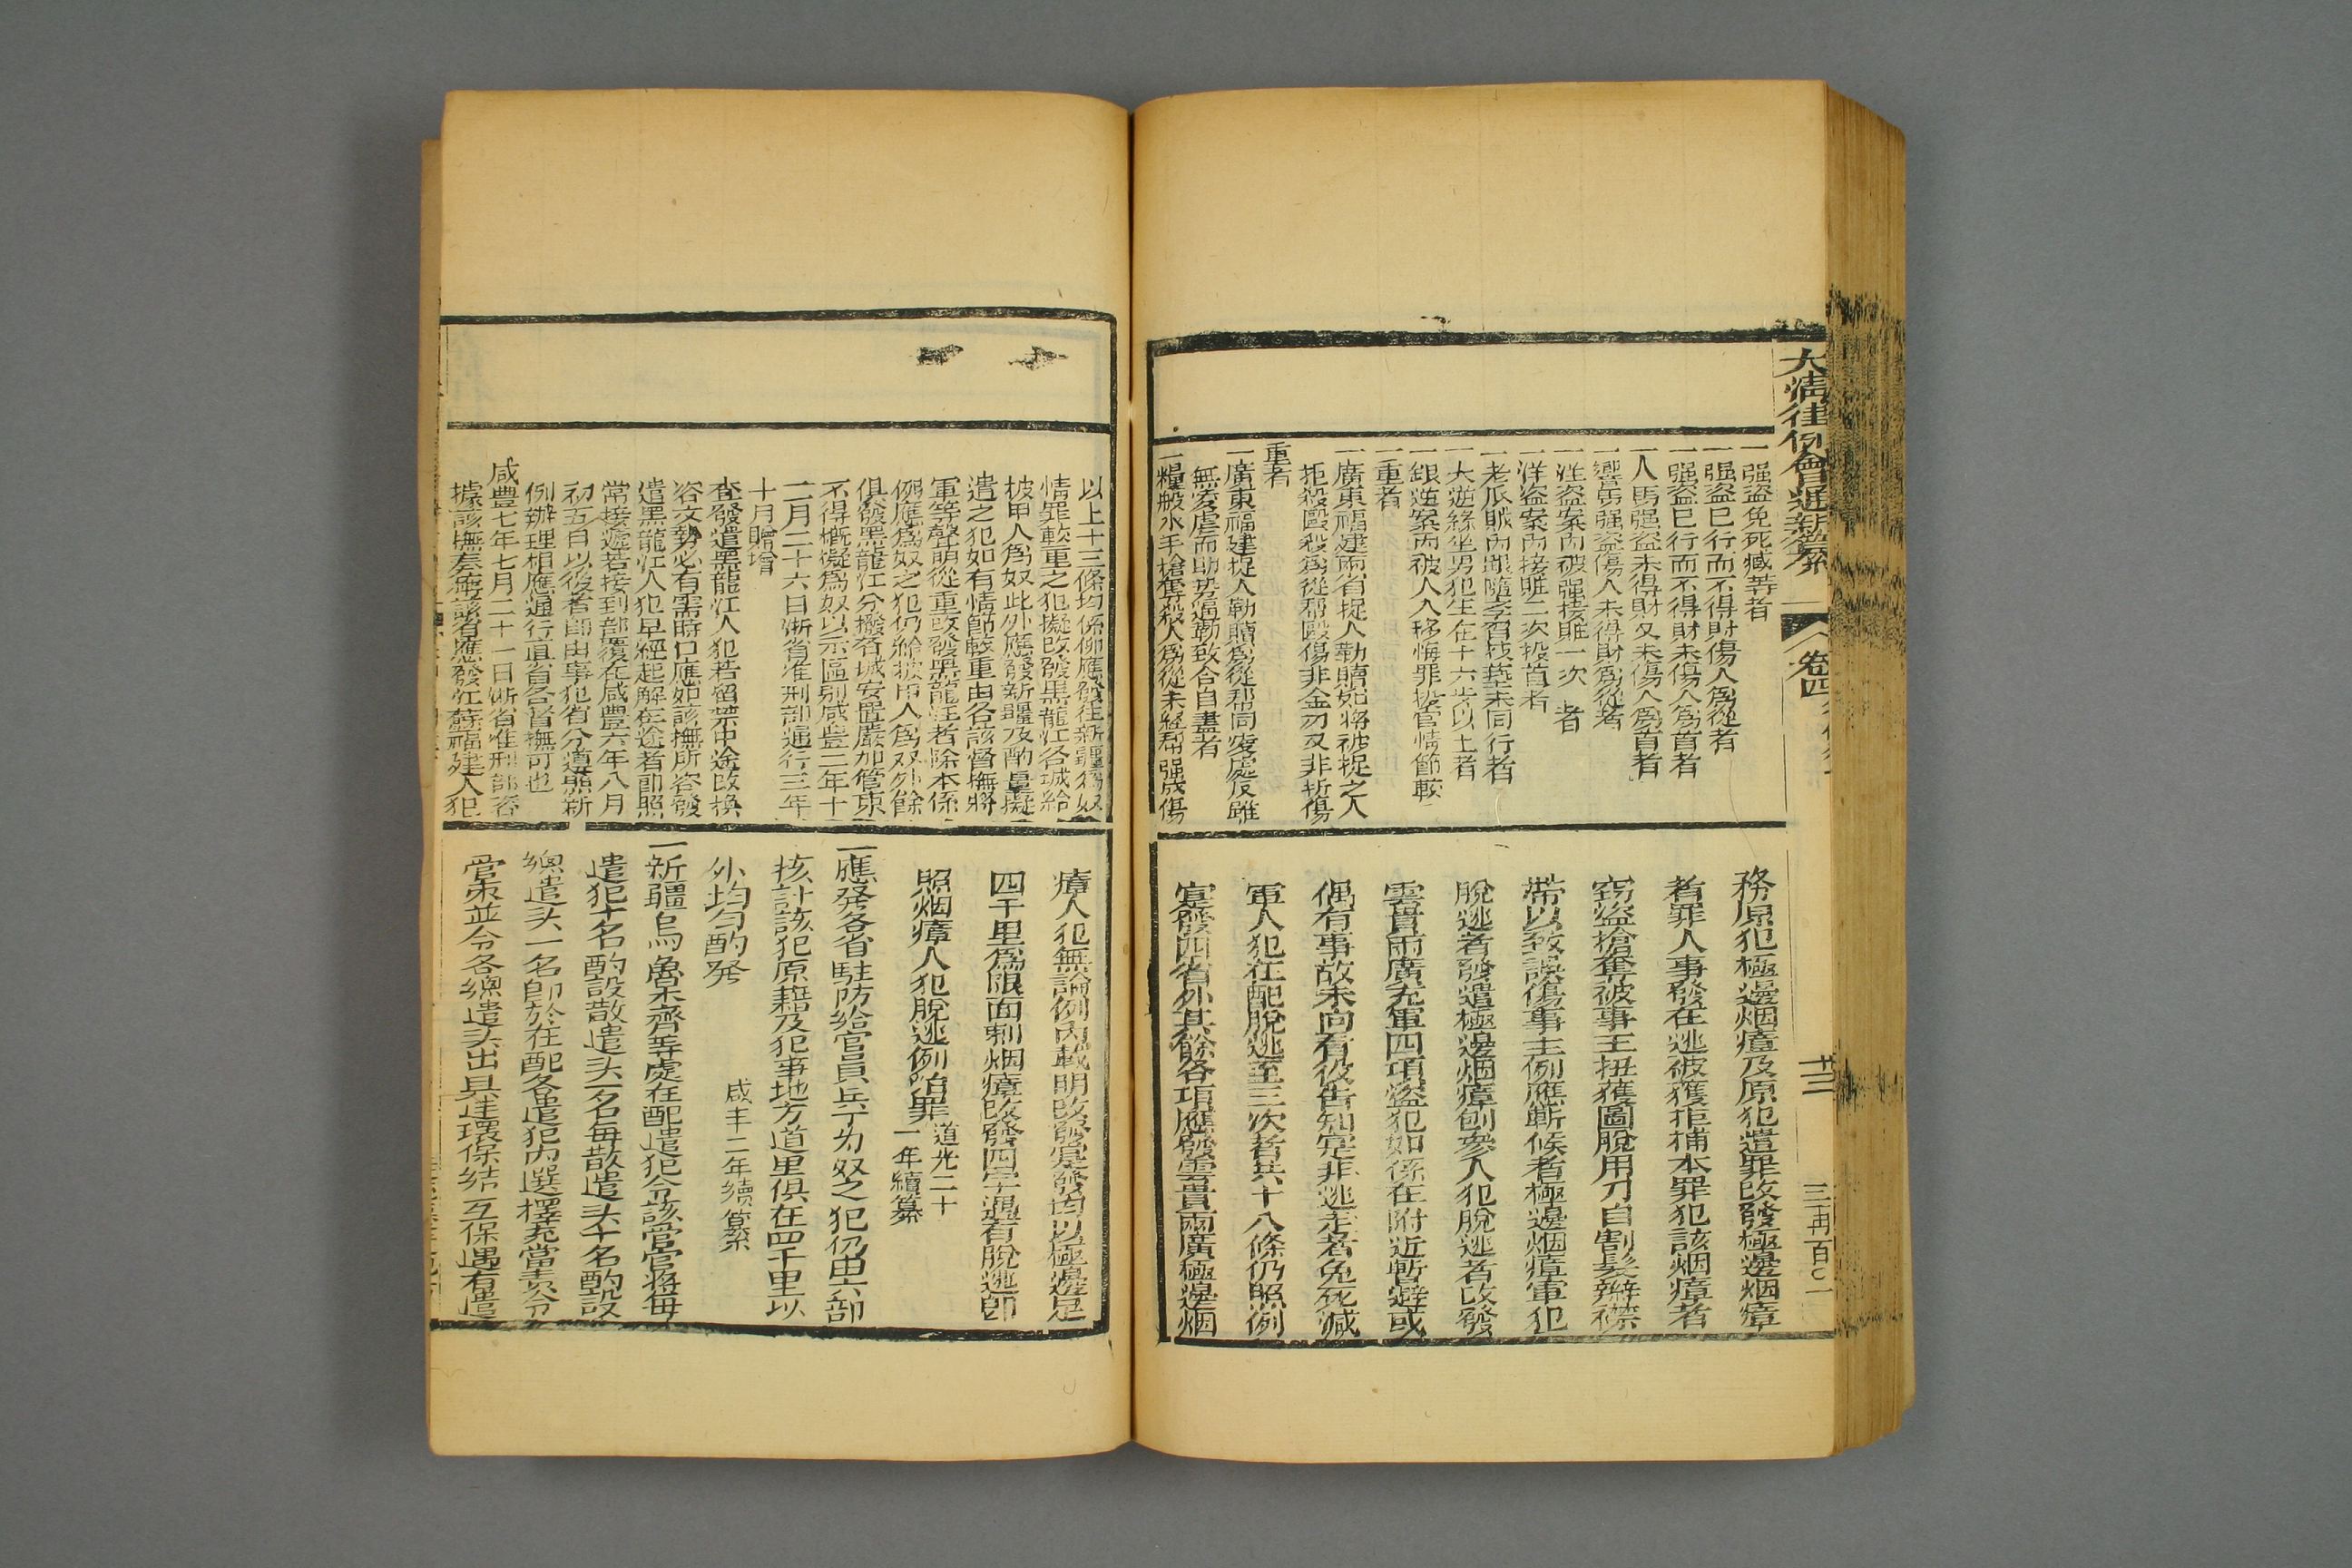 大清律例會通新纂
卷四
廿三
三再百〇一
一强盜免死減等者
一强盜已行而不得財傷人爲從者
一强盜已行而不得財未傷人爲首者
一人馬强盜未得財又未傷人爲首者
一響馬强盜傷人未得財爲從者
一洋盜案內被强接贓一次者
一洋盜案內接贓二次投首者
一老瓜賊內跟隨學習技藝未同行者
一大逆緣坐男犯年在十六歲以上者
一銀逆案內被人入移悔罪投官情節較
一重者
一廣東福建兩省捉人勒贖如將被捉之人
拒殺毆殺爲從幇毆傷非金刃又非折傷
重者
一廣東福建捉人勒贖爲從幇同凌虐及雖
無凌虐而助勢逼勒致令自盡者
一糧船水手搶奪殺人爲從未經幇强成傷
務原犯極邊烟瘴及原犯遣罪改發極邊烟瘴
者罪人事發在逃被獲拒捕本罪犯該烟瘴者
竊盜搶奪被事主扭獲圖脫用刀自割髮辮襟
帶以致誤傷事主例應斬候者極邊烟瘴軍犯
脫逃者發遣極邊烟瘴刨參人犯脫逃者改發
雲貴兩廣充軍四項盜犯如係在附近暫避或
偶有事故未向看役告知定非逃走者免死減
軍人犯在配脫逃至三次者共十八條仍照例
寔發四省外其餘各項應發雲貴兩廣極邊烟
十一
以上十三條均係仰應發往新疆爲奴
情罪較重之犯擬改發黑龍江各城給
披甲人爲奴此外應發新疆及酌量擬
遣之犯如有情節較重由各該督撫將
軍等聲明從重改發黑龍江者除本係
例應爲奴之犯仍給披甲人爲奴外餘
俱發黑龍江分撥各城安置嚴加管束
不得槪擬爲奴以示區別咸豐二年十
二月二十六日浙省准刑部通行三年
十月贈增
查發遣黑龍江人犯若留禁中途改換
咨文勢必有需時口應如該撫所咨發
遣黑龍江人犯早經起解在途者卽照
常接遞若接到部覆在咸豐六年八月
初五日以後者卽由事犯省分遵照新
例辦理相應通行直省各督撫可也
咸豐七年七月二十一日浙省准刑部咨
據該撫奏稱該省應發江蘇福建人犯
瘴人犯無論例內載明改發寔發均以極邊足
四千里爲限面刺烟瘴改發四字遇有脫逃卽
照烟瘴人犯脫逃例治罪道光二十
一年續纂
一應発各省駐防給官員兵丁为奴之犯仍由六部
核計該犯原籍及犯事地方道里俱在四千里以
外均匀酌発
咸丰二年續纂
一新疆烏魯木齊等處在配遣犯令該管官將每
遣犯十名酌設散遣头一名每散遣头十名酌設
總遣头一名卽於在配各遣犯內選擇充當責令
管束並令各總遣头出具連環保结互保遇有遣